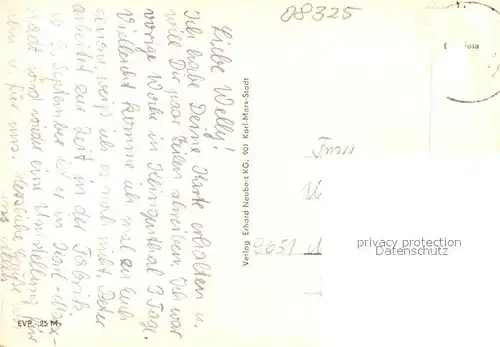 08325
Liebe Welly!
Ich habe Deine Karte erhalten u.
will Dir paar Zeilen schreiben. Ich war
vorige Woche in Klingenthal 3 Tage.
Vielleicht komme ich mal zu Euch
genau weiß ich es noch nicht. Peter
arbeitet zur Zeit in der Fabrik
3. September ist er in Karl-Marx-
Stadt wird wieder eine Umstellung für
ihn u. für uns. Herzliche Grüße
Verlag Erhard Neubert KG, 901 Karl-Marx-Stadt
EVP -,25 M
Foto
Frau
9651
privacy protection
AnsichtskartenVersand.com